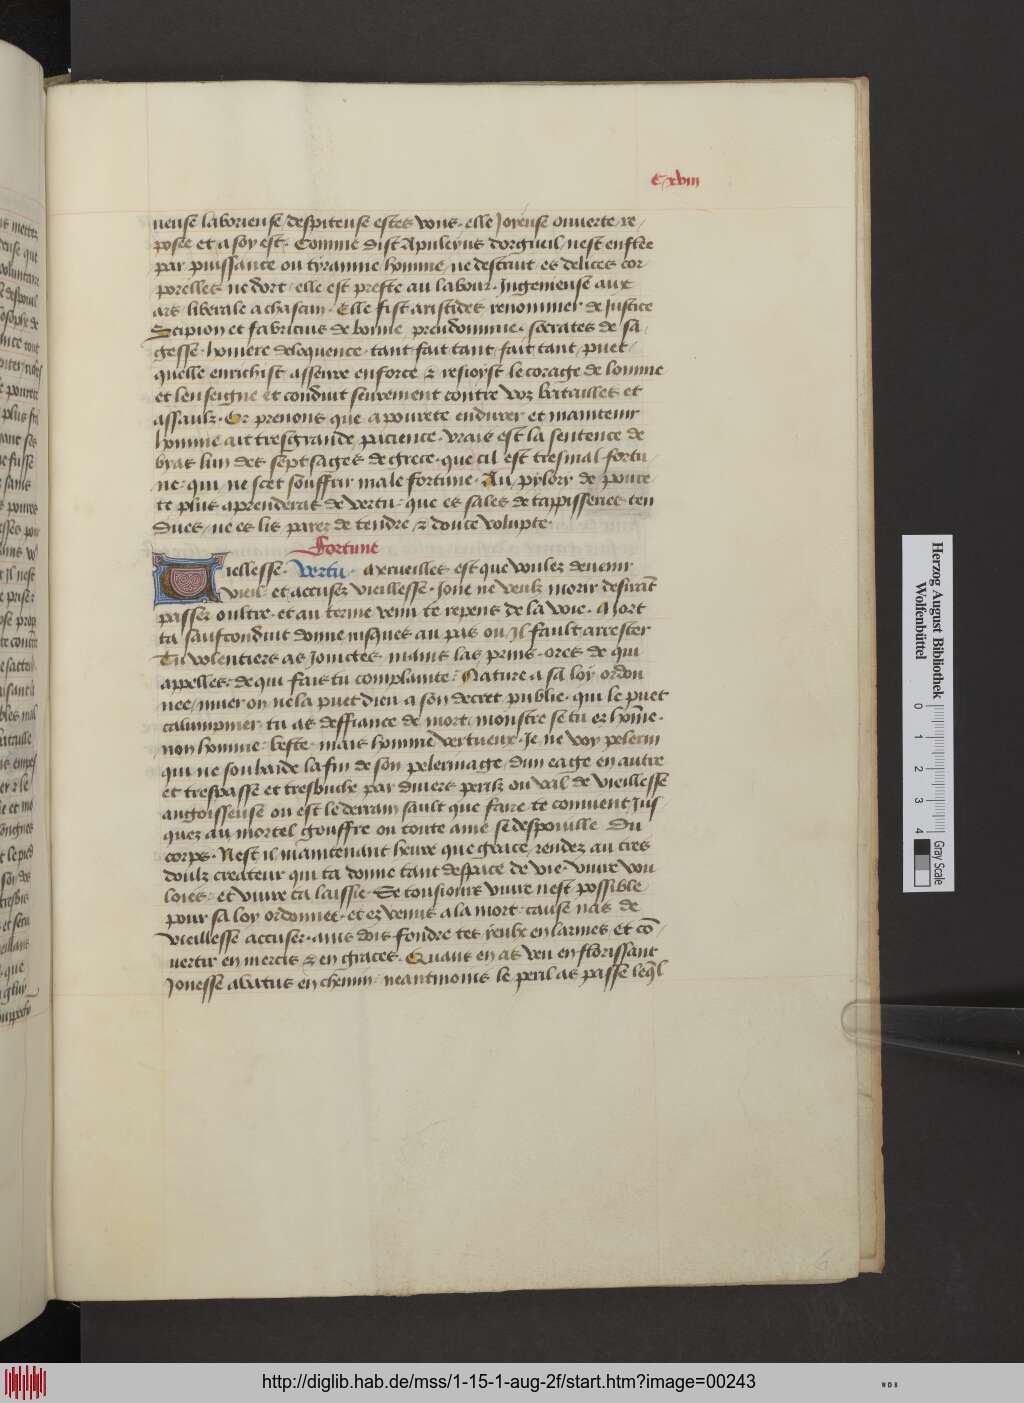 C xviii
neuse laborieuse despiteuse estes vous. elle joyeuse ouuerte re
posee et a soy est. Comme dist Apuleyus dorgueil nest enflee
par puissance ou tyrannie homme ne destruit es delices cor
porelles ne dort elle est preste au labour. Ingenieuse aux
ars liberale a chascun. Elle fist aristides renommer de Justice
Scipion et fabricius de bonne preudommie. socrates de sa
gesse. homere deloquence. tant fait tant fait tant puet
quelle enrichist asseure enforce & resioyst le corage de lomme
et lenseigne et conduit seurement contre voz batailles et
assaulz. Or prenons que a pourete endurer et maintenir
homme ait tresgrande pacience. vraie est la sentence de
byas lun des sept sages de grece. que cil est tresmal fortu
ne. qui ne scet souffrir male fortune. Au pylory de poure
te plus aprenderas de vertu. que es sales de tappisseries ten
dues ne es lis parez de tendre & doulce volupte.
Fortune
Viellesse. Vertu. merueilles est que voulez deuenir
vieil et accusez vieillesse. Jone ne veulz morir desirant
passer oultre. et au terme venu te repens de la voie. Mort
ta saufconduit donne jusques au pas ou Il fault arrester
Tu volentiers as Joinctes mains las prins. ores de qui
appelles. de qui fais tu complainte. Nature a sa loy ordon
nee muer on ne la puet dieu a son decret publie. qui le puet
calumpnier. tu as deffiance de mort monstre se tu es homme.
non homme. beste. mais homme vertueux. Je ne voy pelerin
qui ne souhaide la fin de son pelerinage. dun eage en autre
et trespasse et tresbuche par diuers perilz ou val de vieillesse
angoisseuse ou est le derrain sault que faire te conuient Jus
quez au mortel gouffre ou toute ame se despouille Du
corps. Nest il maintenant heure que grace rendez au tres
doulz createur qui ta donne tant despace de vie. viure vou
loies. et viure ta laissie. Se tousiours viure nest possible
pour sa loy ordonnee. et ez venus a la mort. cause nas de
vieillesse accuser. ains dois fondre tes yeulx en larmes et co
uertir en mercis & en graces. Quans en as veu en florissant
Jonesse abatus en chemin. neantmoins le peril as passe leql
Herzog August Bibliothek
Wolfenbüttel
0 1 2 3 4
Gray Scale
http://diglib.hab.de/mss/1-15-1-aug-2f/start.htm?image=00243